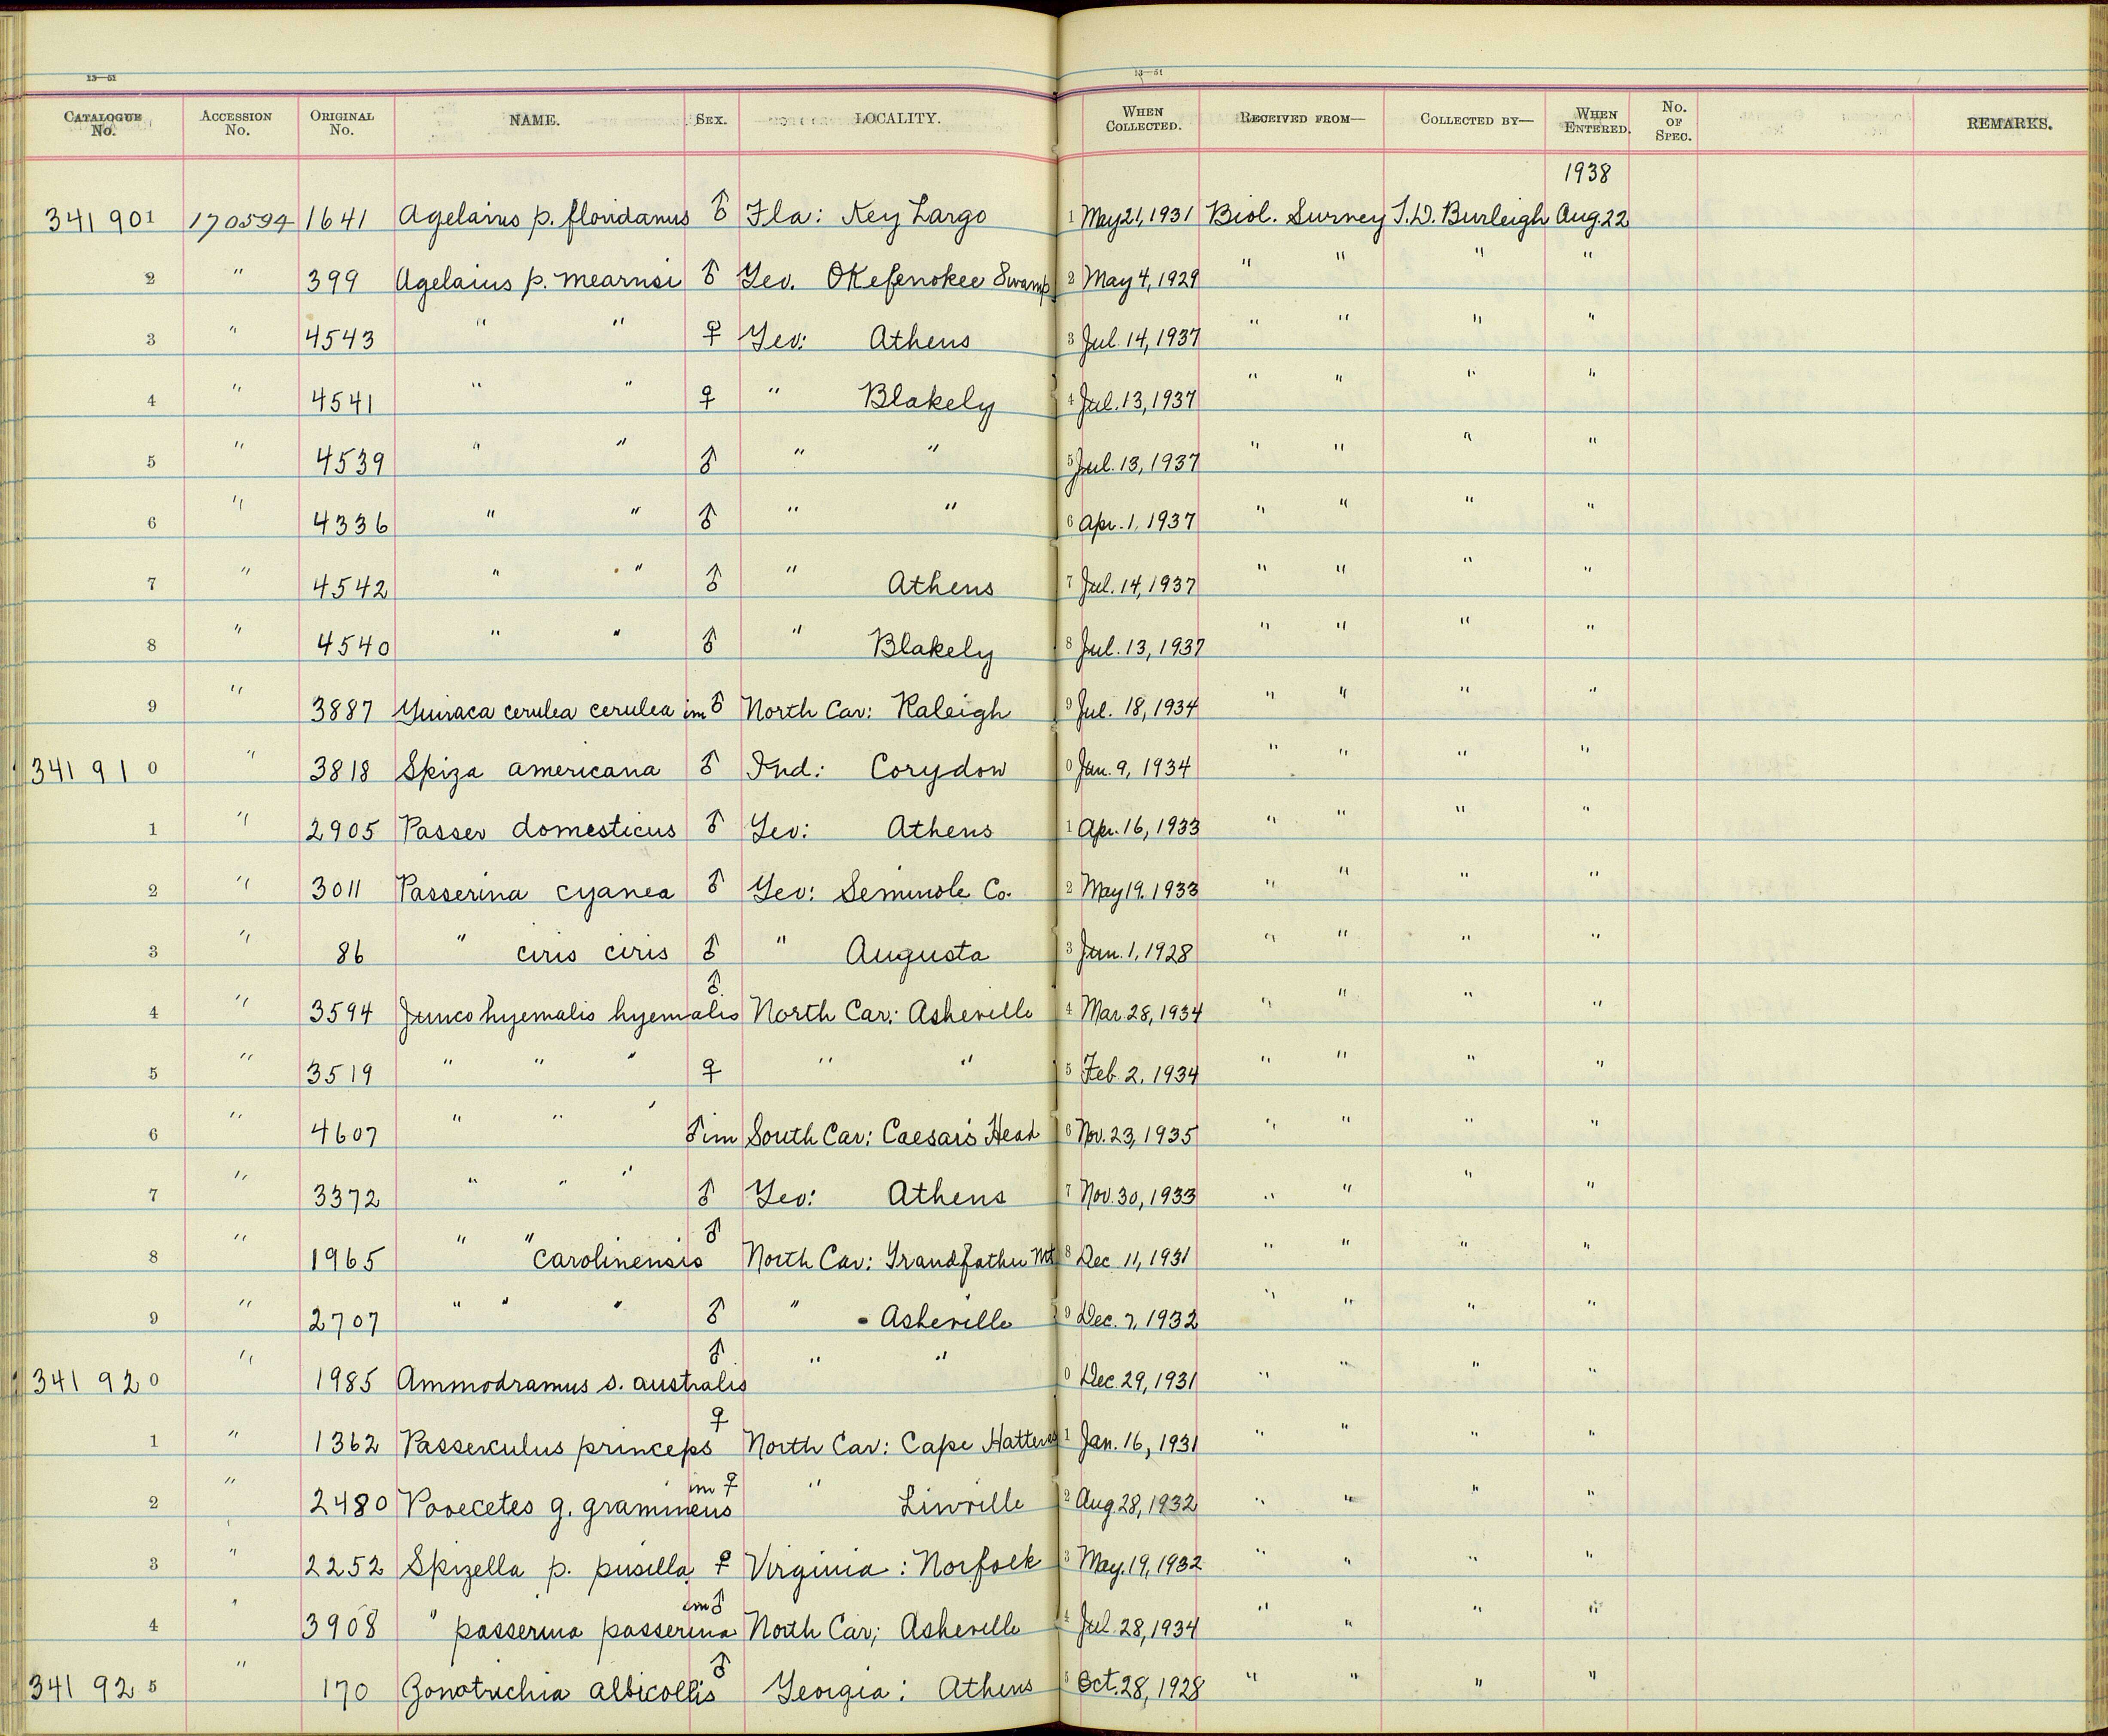 13—51 13—51
CATALOGUE No. ACCESSION No. ORIGINAL No. NAME. SEX. LOCALITY. WHEN COLLECTED. RECEIVED FROM— COLLECTED BY— WHEN ENTERED. No. OF SPEC. REMARKS.
1938
341 901 170594 1641 Agelaius p. floridanus ♂ Fla: Key Largo 1 May 21, 1931 Biol. Survey T.D. Burleigh Aug. 22
2 " 399 Agelaius p. mearnsi ♂ Geo. Okefenokee Swamp 2 May 4, 1929 " " " "
3 " 4543 " " ♀ Geo: Athens 3 Jul. 14, 1937 " " " "
4 " 4541 " " ♀ " Blakely 4 Jul. 13, 1937 " " " "
5 " 4539 " " ♂ " " 5 Jul. 13, 1937 " " " "
6 " 4336 " " ♂ " " 6 Apr. 1, 1937 " " " "
7 " 4542 " " ♂ " Athens 7 Jul. 14, 1937 " " " "
8 " 4540 " " ♂ " Blakely 8 Jul. 13, 1937 " " " "
9 " 3887 Guiraca cerulea cerulea im ♂ North Car: Raleigh 9 Jul. 18, 1934 " " " "
341 91 0 " 3818 Spiza americana ♂ Ind: Corydon 0 Jun. 9, 1934 " " " "
1 " 2905 Passer domesticus ♂ Geo: Athens 1 Apr. 16, 1933 " " " "
2 " 3011 Passerina cyanea ♂ Geo: Seminole Co. 2 May 19. 1933 " " " "
3 " 86 " ciris ciris ♂ " Augusta 3 Jun. 1, 1928 " " " "
4 " 3594 Junco hyemalis hyemalis ♂ North Car: Asheville 4 Mar. 28, 1934 " " " "
5 " 3519 " " " ♀ " " 5 Feb. 2, 1934 " " " "
6 " 4607 " " " ♂ im South Car: Caesar's Head 6 Nov. 23, 1935 " " " "
7 " 3372 " " " ♂ Geo: Athens 7 Nov. 30, 1933 " " " "
8 " 1965 " " carolinensis ♂ North Car: Grandfather Mt 8 Dec 11, 1931 " " " "
9 " 2707 " " " ♂ " - Asheville 9 Dec. 7, 1932 " " " "
341 92 0 " 1985 Ammodramus s. australis ♂ " " 0 Dec. 29, 1931 " " " "
1 " 1362 Passerculus princeps ♀ North Car: Cape Hatteras 1 Jan. 16, 1931 " " " "
2 " 2480 Pooecetes g. gramineus im ♀ " Linville 2 Aug. 28, 1932 " " " "
3 " 2252 Spizella p. pusilla ♀ Virginia: Norfolk 3 May. 19, 1932 " " " "
4 " 3908 " passerina passerina im ♂ North Car; Asheville 4 Jul. 28, 1934 " " " "
341 92 5 " 170 Zonotrichia albicollis ♂ Georgia: Athens 5 Oct. 28, 1928 " " " "